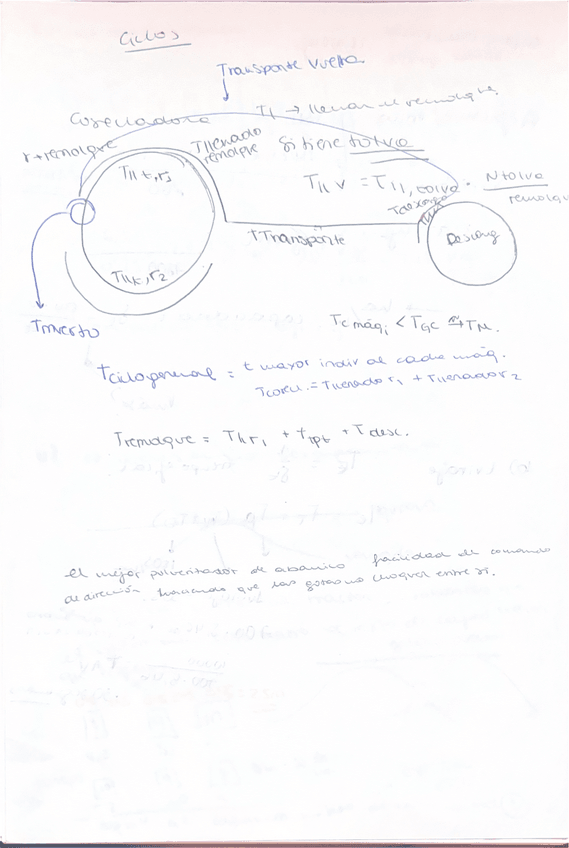 Ciclos
Transporte vuelta
Cosechadora
T1 → llenar el remolque.
r+remolque
Tllenado
remolque
Si tiene tolva
Tll v = Tll, tolva · Ntolva
remolque
Tdescarga
Tllt, r3
tTransporte
Descarg
Tllt, r2
Tmuerto
Tc máq i < TGC ≈ TN.
tciclogeneral = t mayor indiv al cada máq.
Tcosch. = Tllenado r1 + Tllenado r2
Tremolque = Tll r1 + ttpt + Tdesc.
el mejor pulverizador de abanico facilidad de
de dirección haciendo que las gotas no choquen entre sí.